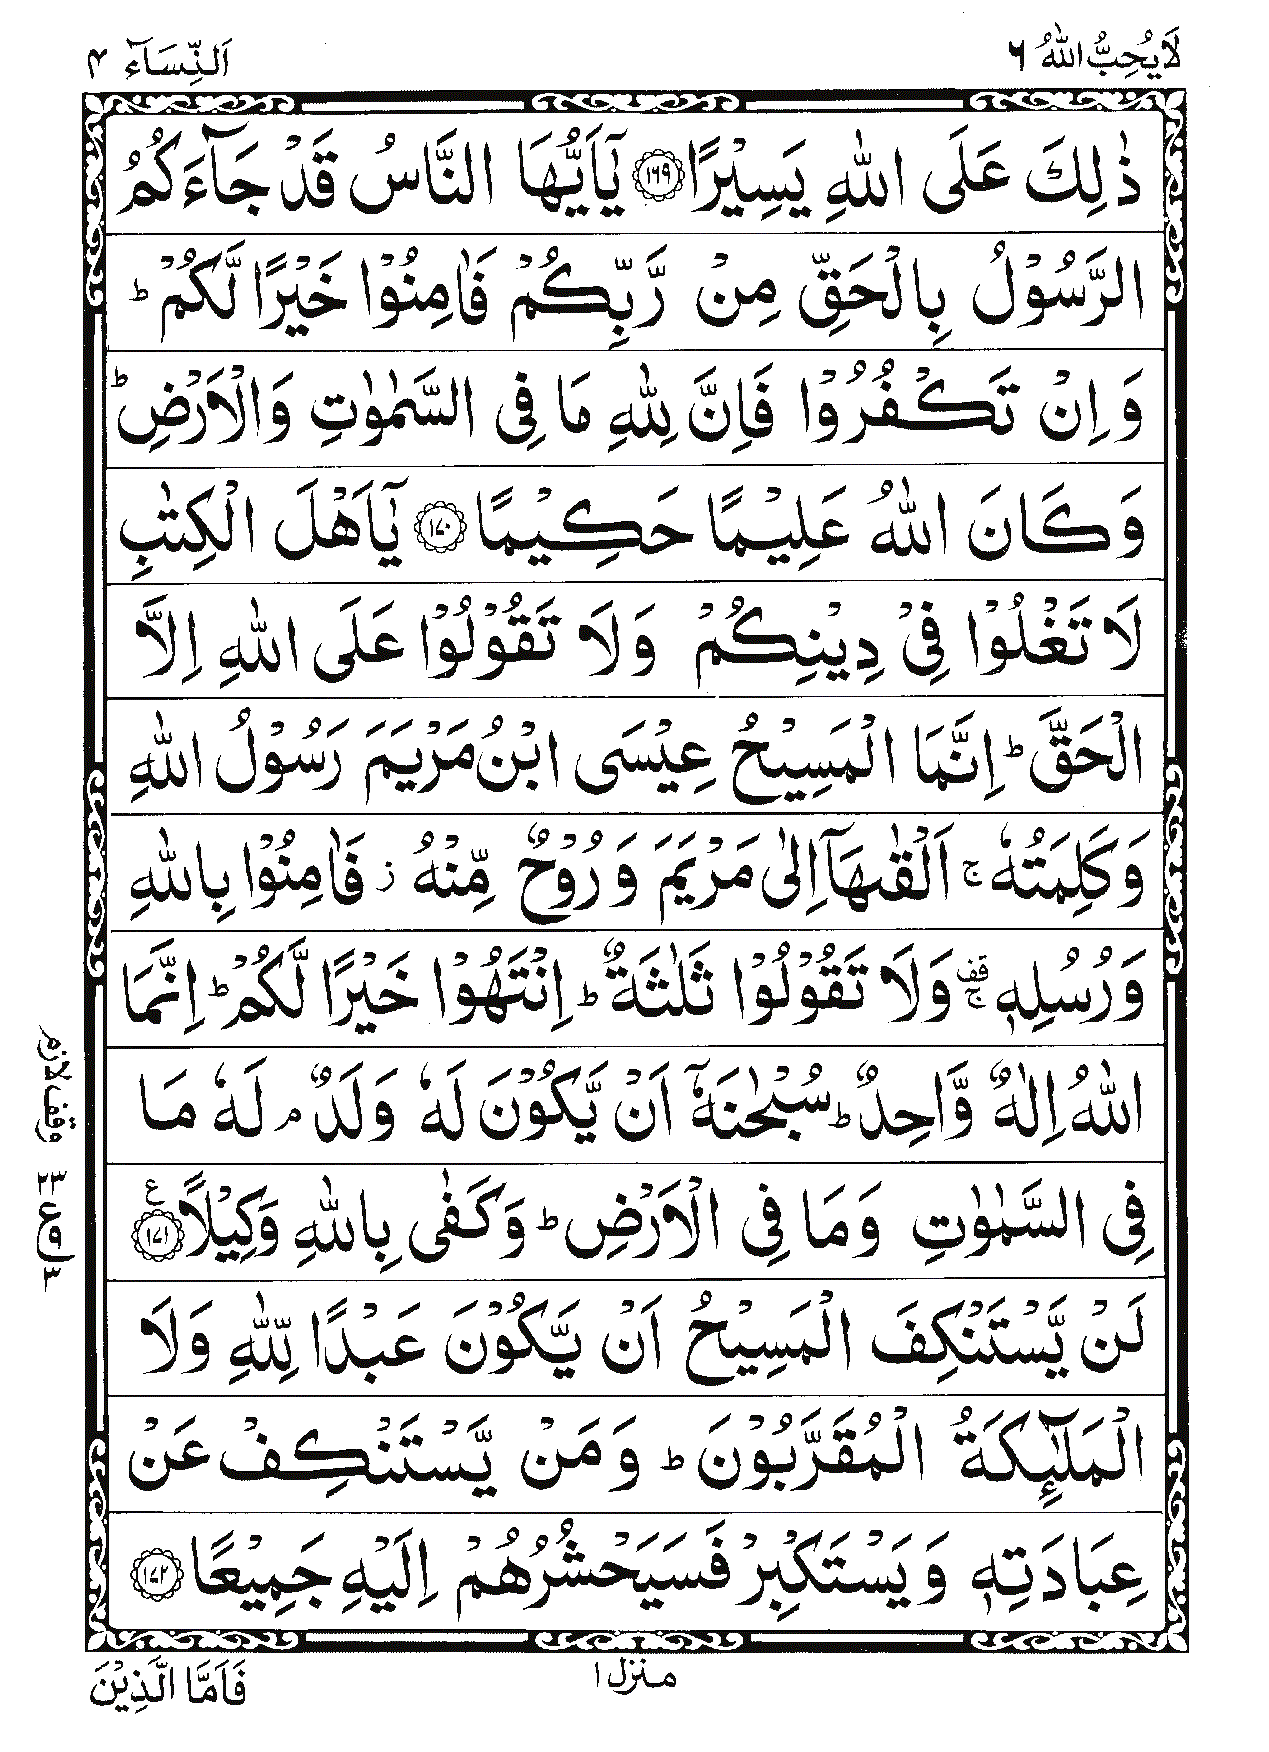 لَا يُحِبُّ اللّٰهُ ٦
اَلنِّسَآء ٤
ذٰلِكَ عَلَى اللّٰهِ يَسِيْرًا ﴿١٦٩﴾ يٰۤاَيُّهَا النَّاسُ قَدْ جَآءَكُمُ
الرَّسُوْلُ بِالْحَقِّ مِنْ رَّبِّكُمْ فَاٰمِنُوْا خَيْرًا لَّكُمْ ؕ
وَ اِنْ تَكْفُرُوْا فَاِنَّ لِلّٰهِ مَا فِى السَّمٰوٰتِ وَالْاَرْضِ ؕ
وَكَانَ اللّٰهُ عَلِيْمًا حَكِيْمًا ﴿١٧٠﴾ يٰۤاَهْلَ الْكِتٰبِ
لَا تَغْلُوْا فِىْ دِيْنِكُمْ وَلَا تَقُوْلُوْا عَلَى اللّٰهِ اِلَّا
الْحَقَّ ؕ اِنَّمَا الْمَسِيْحُ عِيْسَى ابْنُ مَرْيَمَ رَسُوْلُ اللّٰهِ
وَكَلِمَتُهٗ ۚ اَلْقٰىهَاۤ اِلٰى مَرْيَمَ وَ رُوْحٌ مِّنْهُ ز فَاٰمِنُوْا بِاللّٰهِ
وَرُسُلِهٖ ۚ قف وَلَا تَقُوْلُوْا ثَلٰثَةٌ ؕ اِنْتَهُوْا خَيْرًا لَّكُمْ ؕ اِنَّمَا
اللّٰهُ اِلٰهٌ وَّاحِدٌ ؕ سُبْحٰنَهٗۤ اَنْ يَّكُوْنَ لَهٗ وَلَدٌ ۘ لَهٗ مَا
فِى السَّمٰوٰتِ وَمَا فِى الْاَرْضِ ؕ وَكَفٰى بِاللّٰهِ وَكِيْلًا ﴿١٧١﴾ ع
لَنْ يَّسْتَنْكِفَ الْمَسِيْحُ اَنْ يَّكُوْنَ عَبْدًا لِّلّٰهِ وَلَا
الْمَلٰٓئِكَةُ الْمُقَرَّبُوْنَ ؕ وَ مَنْ يَّسْتَنْكِفْ عَنْ
عِبَادَتِهٖ وَ يَسْتَكْبِرْ فَسَيَحْشُرُهُمْ اِلَيْهِ جَمِيْعًا ﴿١٧٢﴾
وقف لازم
٢٣
ع ٩
٣
منزل ١
فَاَمَّا الَّذِيْنَ